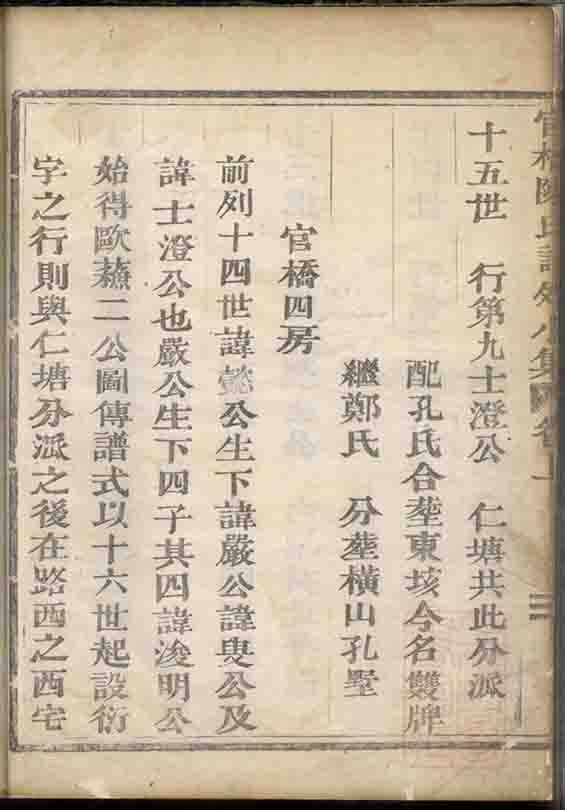 官橋陳氏譜外八集 卷上
十五世 行第九士澄公 仁塘共此分派
配孔氏合塟東垓今名雙牌
繼鄭氏 分塟橫山孔墅
官橋四房
前列十四世諱懿公生下諱嚴公諱叟公及
諱士澄公也嚴公生下四子其四諱浚明公
始得歐蘓二公圖傳譜式以十六世起設衍
字之行則與仁塘分派之後在路西之西宅